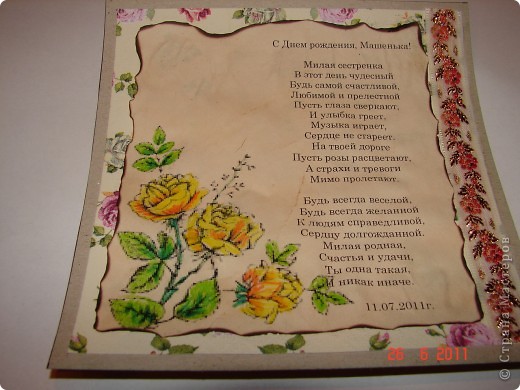 С Днем рождения, Машенька!
Милая сестренка
В этот день чудесный
Будь самой счастливой,
Любимой и прелестной
Пусть глаза сверкают,
И улыбка греет,
Музыка играет,
Сердце не стареет.
На твоей дороге
Пусть розы расцветают,
А страхи и тревоги
Мимо пролетают.
Будь всегда веселой,
Будь всегда желанной
К людям справедливой,
Сердцу долгожданной.
Милая родная,
Счастья и удачи,
Ты одна такая,
И никак иначе.
11.07.2011г.
26 6 2011
© Страна Мастеров